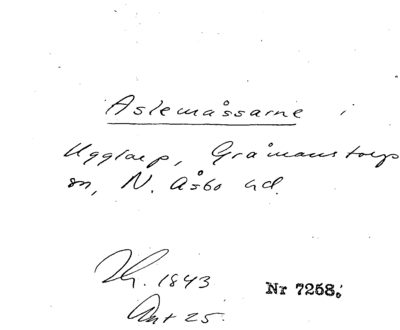 Aslemåssarne i
Ugglarp, Gråmanstorps
sn, N. Åsbo hd.
Th. 1843
Ant 25.
Nr 7258.